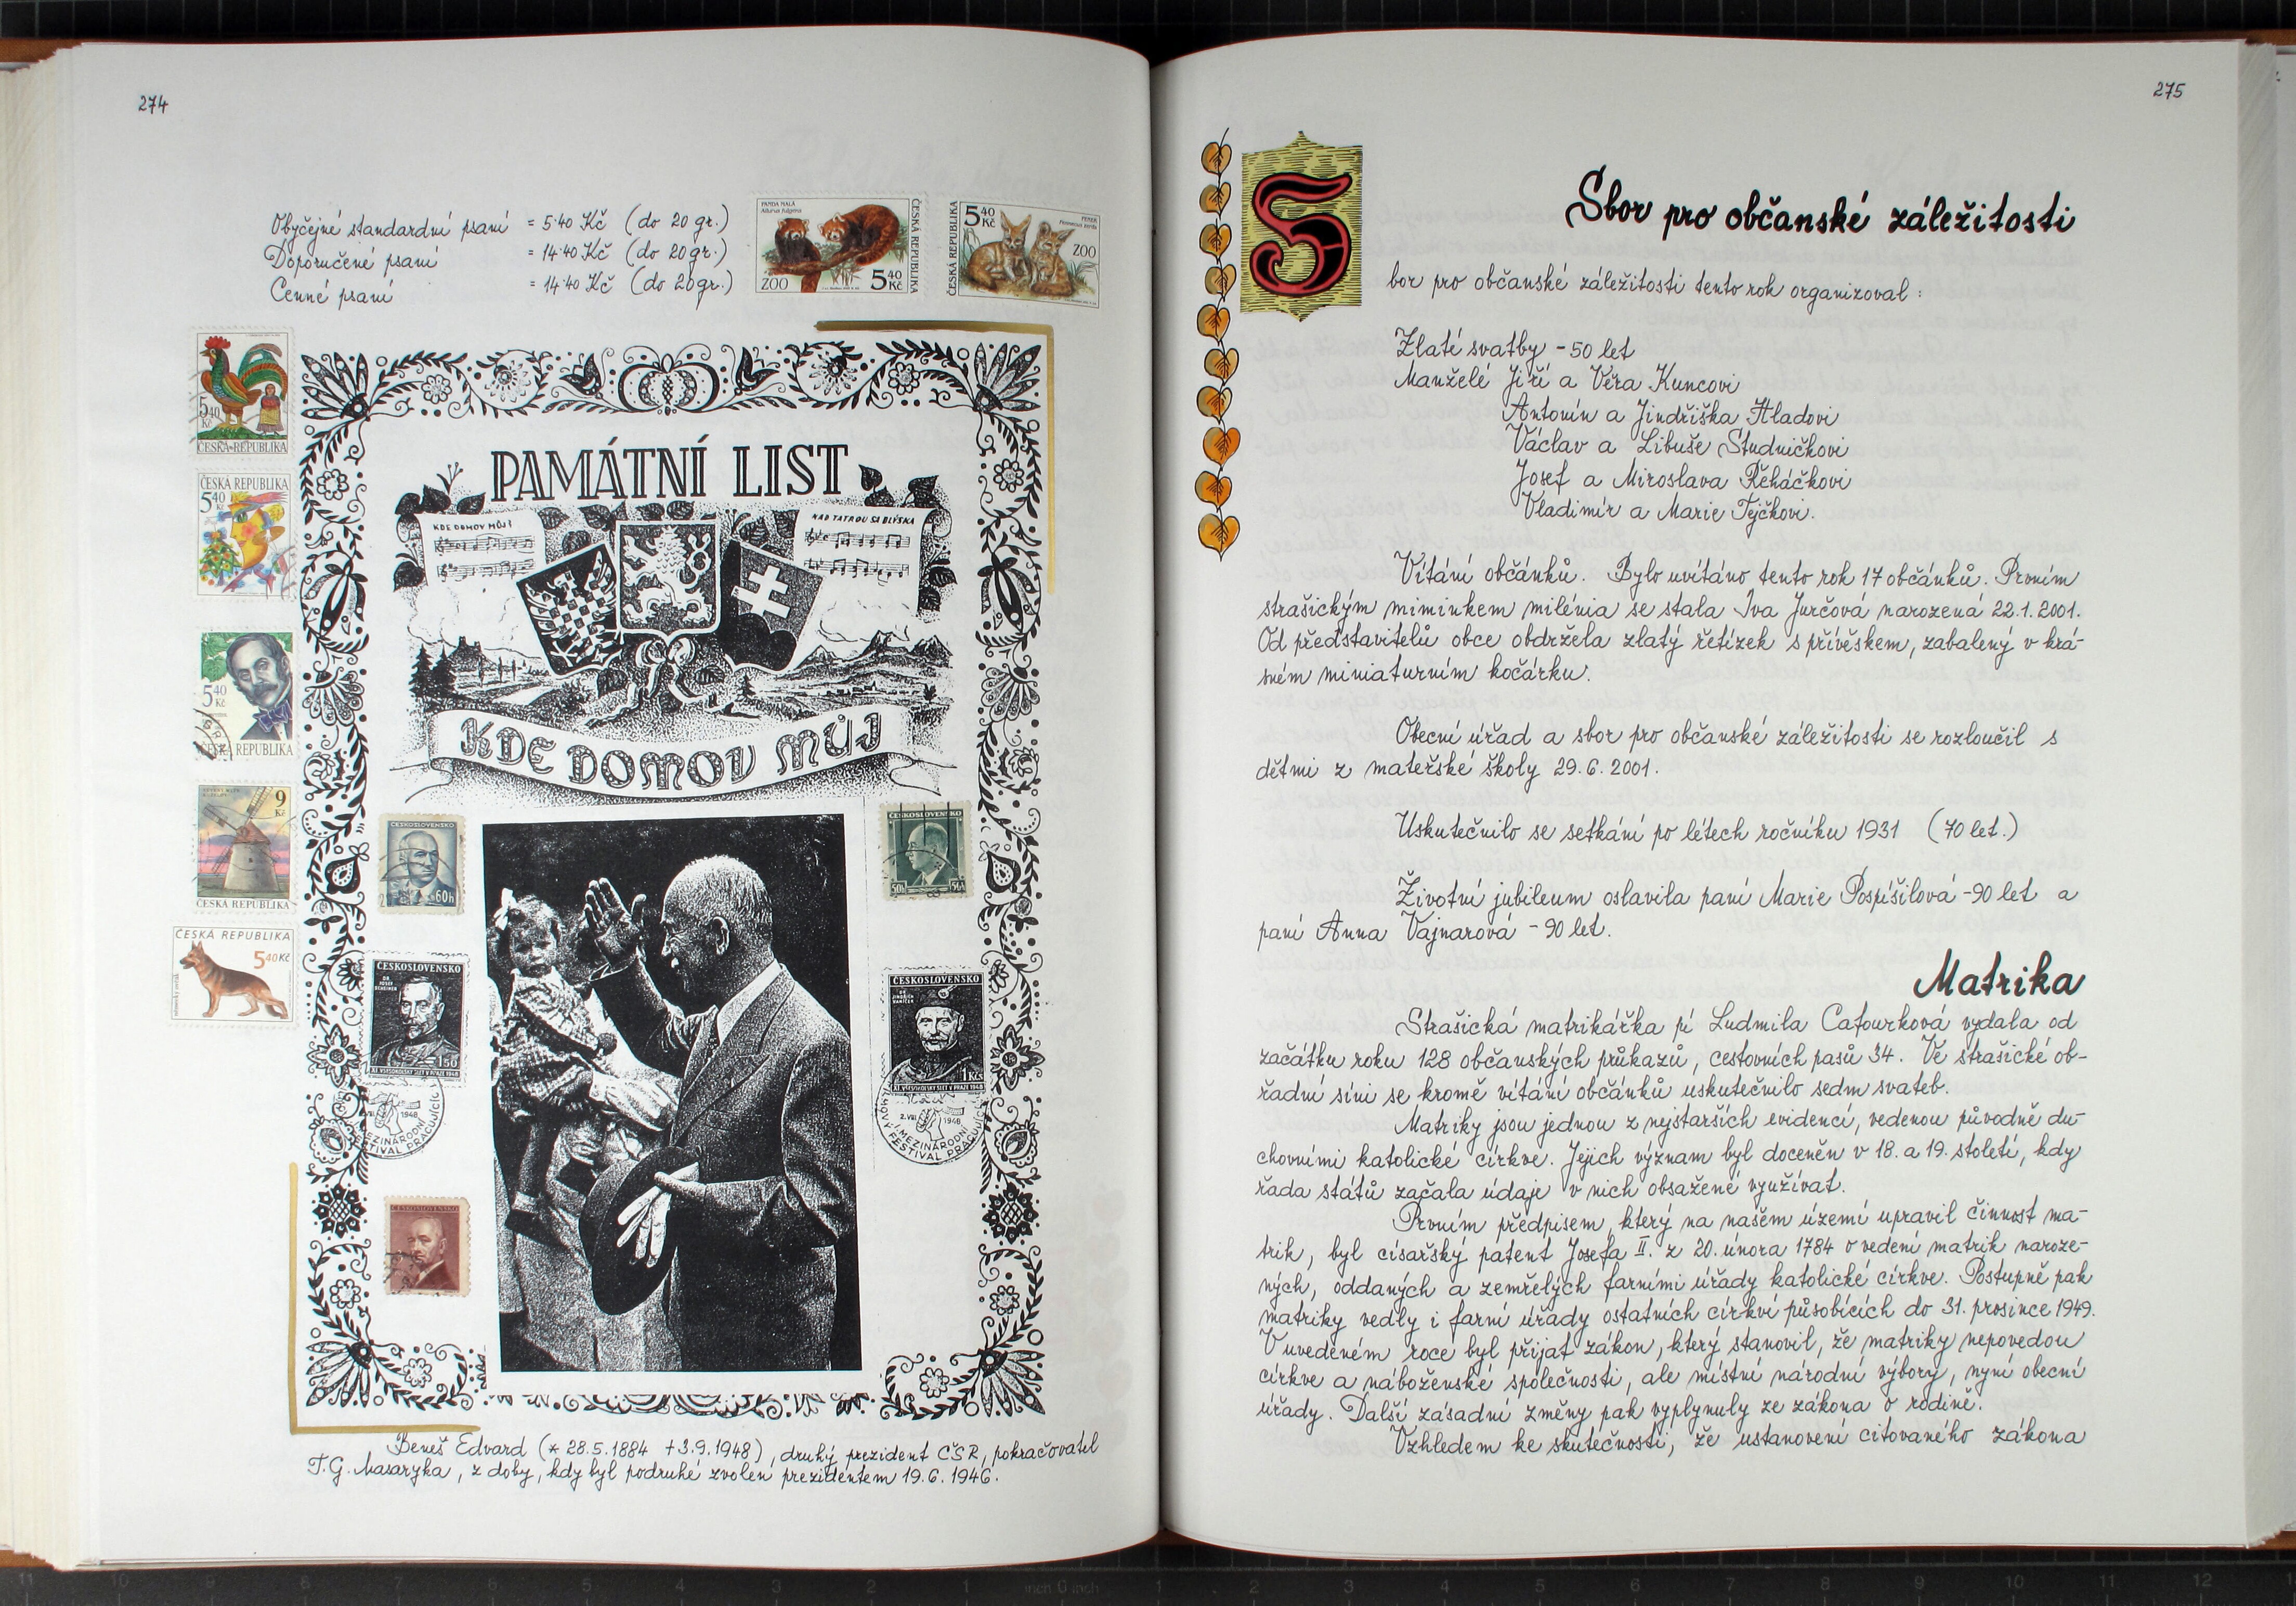 274
Obyčejné standardní psaní = 5·40 Kč (do 20 gr.)
Doporučené psaní = 14·40 Kč (do 20gr.)
Cenné psaní = 14·40 Kč (do 20gr.)
PANDA MALÁ
Ailurus fulgens
ČESKÁ REPUBLIKA
ZOO
5 40 Kč
5 40 Kč
FENEK
ZOO
ČESKÁ REPUBLIKA
5 40 Kč
ČESKÁ REPUBLIKA
ČESKÁ REPUBLIKA
5 40 Kč
5 40 Kč
ČESKÁ REPUBLIKA
9 Kč
ČESKÁ REPUBLIKA
ČESKÁ REPUBLIKA
5 40 Kč
PAMÁTNÍ LIST
KDE DOMOV MŮJ
NAD TATROU SA BLÝSKA
KDE DOMOV MŮJ
ČESKOSLOVENSKO
60h
ČESKOSLOVENSKO
50h
ČESKOSLOVENSKO
DR JOSEF SCHEINER
1.50
XI. VŠESOKOLSKÝ SLET V PRAZE 1948
1948
MEZINÁRODNÍ
FESTIVAL PRACUJÍCÍCH
ČESKOSLOVENSKO
DR JINDŘICH VANÍČEK
1 Kčs
XI. VŠESOKOLSKÝ SLET V PRAZE 1948
2.VIII 1948
I. MEZINÁRODNÍ
FILMOVÝ FESTIVAL PRACUJÍCÍCH
ČESKOSLOVENSKO
Beneš Edvard (* 28.5.1884 +3.9.1948), druhý prezident ČSR, pokračovatel
T.G. Masaryka, z doby, kdy byl podruhé zvolen prezidentem 19.6.1946.
275
Sbor pro občanské záležitosti
Sbor pro občanské záležitosti tento rok organizoval :
Zlaté svatby - 50 let
Manželé Jiří a Věra Kuncovi
Antonín a Jindřiška Hladovi
Václav a Libuše Studničkovi
Josef a Miroslava Řeháčkovi
Vladimír a Marie Tejčkovi.
Vítání občánků. Bylo uvítáno tento rok 17 občánků. Prvním
strašickým miminkem milénia se stala Iva Jurčová narozená 22.1.2001.
Od představitelů obce obdržela zlatý řetízek s přívěskem, zabalený v krá-
sném miniaturním kočárku.
Obecní úřad a sbor pro občanské záležitosti se rozloučil s
dětmi z mateřské školy 29.6.2001.
Uskutečnilo se setkání po létech ročníku 1931 (70 let.)
Životní jubileum oslavila paní Marie Pospíšilová - 90 let a
paní Anna Vajnarová - 90 let.
Matrika
Strašická matrikářka pí Ludmila Catourková vydala od
začátku roku 128 občanských průkazů, cestovních pasů 34. Ve strašické ob-
řadní síni se kromě vítání občánků uskutečnilo sedm svateb.
Matriky jsou jednou z nejstarších evidencí, vedenou původně du-
chovními katolické církve. Jejich význam byl doceněn v 18. a 19. století, kdy
řada států začala údaje v nich obsažené využívat.
Prvním předpisem, který na našem území upravil činnost ma-
trik, byl císařský patent Josefa II. z 20. února 1784 o vedení matrik naroze-
ných, oddaných a zemřelých farními úřady katolické církve. Postupně pak
matriky vedly i farní úřady ostatních církví působících do 31. prosince 1949.
V uvedeném roce byl přijat zákon, který stanovil, že matriky nepovedou
církve a náboženské společnosti, ale místní národní výbory, nyní obecní
úřady. Další zásadní změny pak vyplynuly ze zákona o rodině.
Vzhledem ke skutečnosti, že ustanovení citovaného zákona